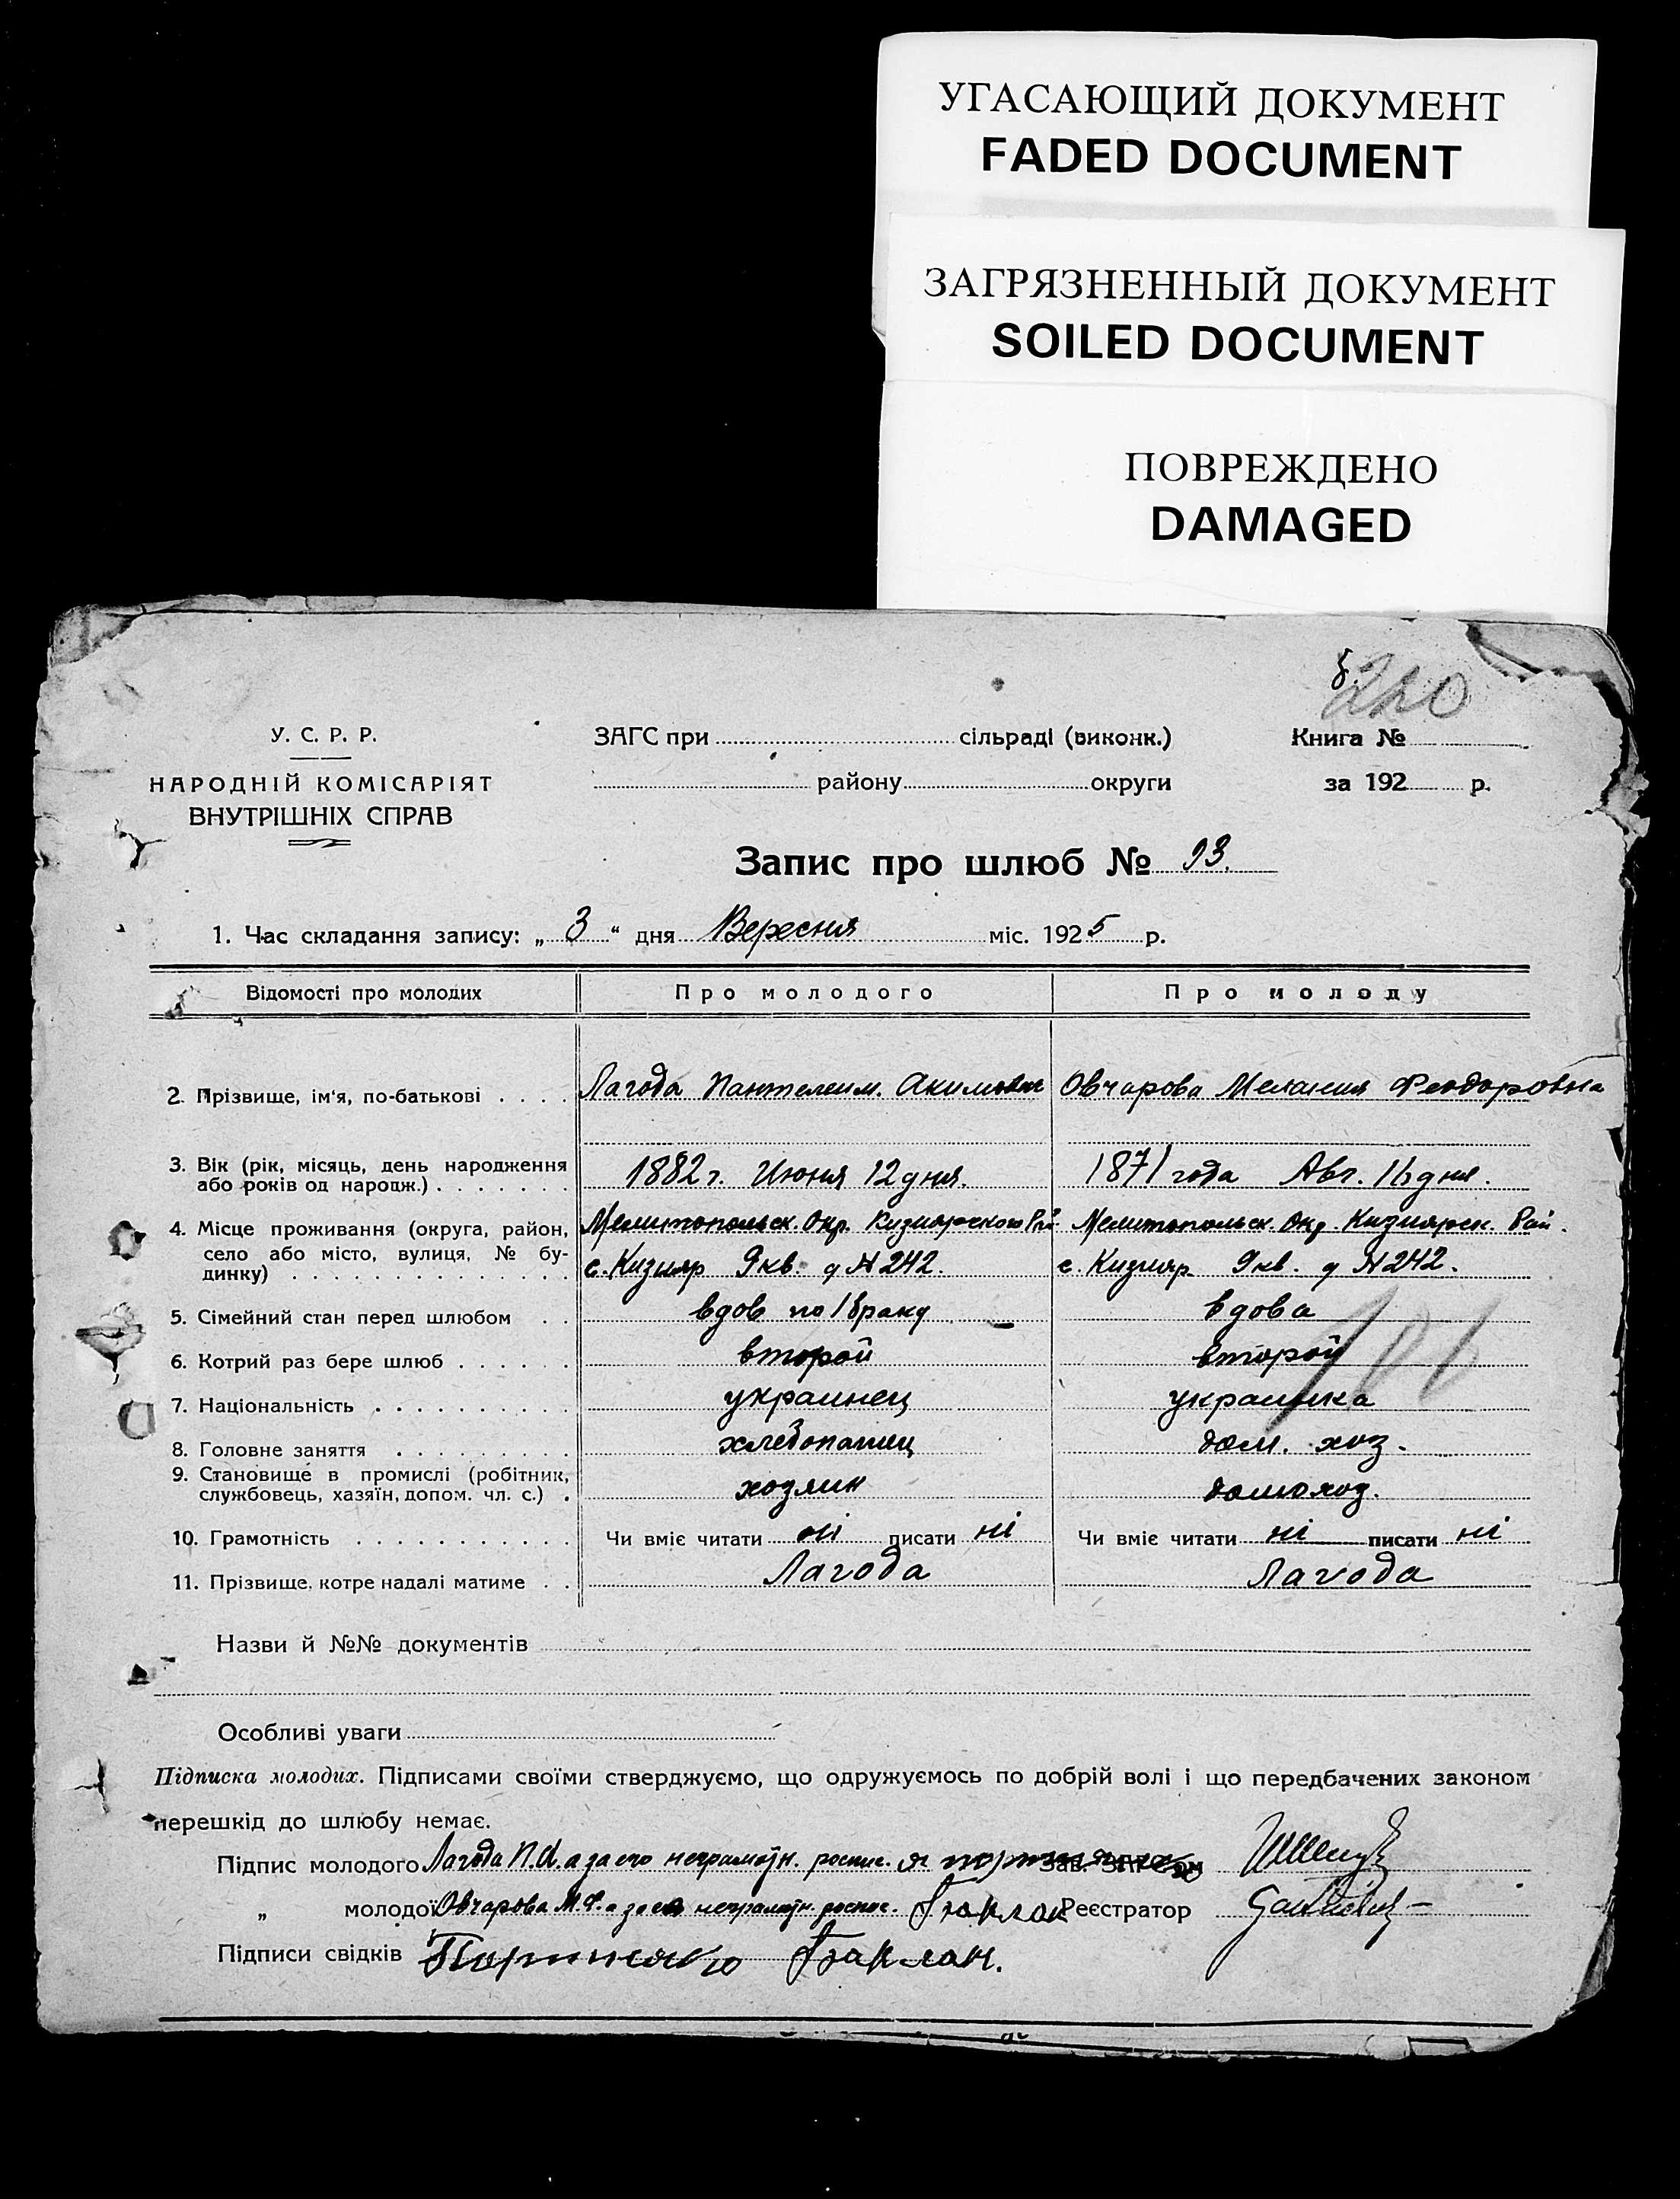 УГАСАЮЩИЙ ДОКУМЕНТ
FADED DOCUMENT
ЗАГРЯЗНЕННЫЙ ДОКУМЕНТ
SOILED DOCUMENT
ПОВРЕЖДЕНО
DAMAGED
У. С. Р. Р.
НАРОДНІЙ КОМІСАРІЯТ
ВНУТРІШНІХ СПРАВ
ЗАГС при сільраді (виконк.)
району округи
Книга №
за 192 р.
Запис про шлюб № 93.
1. Час складання запису: „ 3 “ дня Вересня міс. 1925 р.
Відомості про молодих Про молодого Про молоду
2. Прізвище, ім'я, по-батькові Лагода Пантелеим. Акимович Овчарова Мелания Феодоровна
3. Вік (рік, місяць, день народження 1882 г. Июня 12 дня. 1871 года Авг. дня.
або років од народж.)
4. Місце проживання (округа, район, Мелитопольск. Окр. Кизиярского Рай Мелитопольск. Окр. Кизиярск. Рай.
село або місто, вулиця, № бу- с. Кизияр 9 кв. д № 242. с. Кизияр 9 кв. д № 242.
динку)
5. Сімейний стан перед шлюбом вдов по 1 браку вдова
6. Котрий раз бере шлюб второй второй
7. Національність украинец украинка
8. Головне заняття хлебопашец дом. хоз.
9. Становище в промислі (робітник, хозяин домохоз.
службовець, хазяїн, допом. чл. с.)
10. Грамотність Чи вміє читати ні писати ні Чи вміє читати ні писати ні
11. Прізвище, котре надалі матиме Лагода Лагода
Назви й №№ документів
Особливі уваги
Підписка молодих. Підписами своїми стверджуємо, що одружуємось по добрій волі і що передбачених законом
перешкід до шлюбу немає.
Підпис молодого Лагода П. А. а за его неграмотн. роспис. Зав. ЗАГС'ом
„ молодої Овчарова М. Ф. а за ея неграмотн. роспис. Баклан Реєстратор
Підписи свідків Баклан.